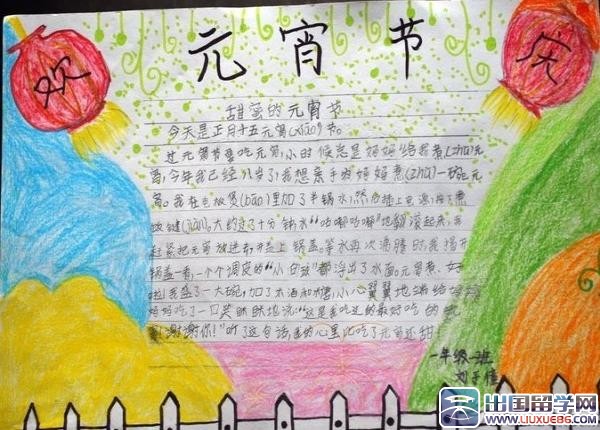 欢 元宵节 庆
甜蜜的元宵节
今天是正月十五元宵(xiāo)节。
过元宵节要吃元宵,小时候总是妈妈给我煮(zhǔ)元
宵,今年我已经八岁了,我想亲手为妈妈煮(zhǔ)一碗元
宵。我在电板煲(bāo)里加了半锅水,然后插上电源,按下煮
饭键(jiàn)。大约过了十分钟,水“咕嘟咕嘟”地翻滚起来,我
赶紧把元宵放进去,并盖上锅盖。等水再次沸腾时,我揭开
锅盖一看,一个个调皮的“小白球”都浮出了水面。元宵煮好
啦!我盛了一大碗,加了米酒和糖,小心翼翼地端给妈妈
妈妈吃了一口笑眯眯地说:“这是我吃过的最好吃的
谢谢你!”听了这句话,我的心里比吃了元宵还甜!
一年级一班
刘子
出国留学网
WWW.LIUXUE86.COM